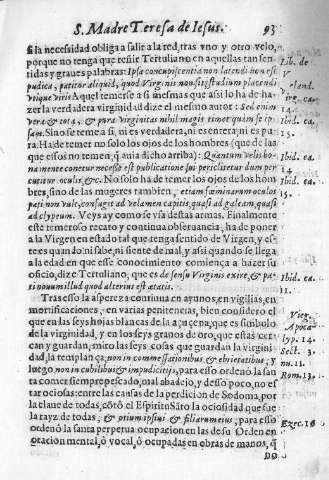 S. Madre Teresa de Iesus. 93
si la necesidad obliga a salir a la red, tras vno y otro velo,
porque no tenga que reñir Tertuliano en aquellas tan sen-
tidas y graues palabras: Ipsa concupiscentia non latendi non est
pudica, patitur aliquid, quod Virginis non sit, studium placendi
vtique viris
Aquel temerse a si mesmas que assi lo ha de ha-
zer la verdadera virginidad dize el mismo autor: Sed enim
vera & tota, & pura virginitas nihil magis timet quàm se ip-
sam. Sino se teme a si, ni es verdadera, ni es entera, ni es pu-
ra. Ha de temer no solo los ojos de los hombres (que de las
que essos no temen, q̃ auia dicho arriba): Quantum velis bo-
na mente conetur necesse est publicatione sui periclitetur dum per-
cutitur oculis, &c. No solo ha de temer los ojos de los hom-
bres, sino de las mugeres tambien, etiam fœminarum oculos
pati non vult, confugit ad velamen capitis, quasi ad galeam, quasi
ad clypeum. Veys ay como se vsa destas armas. Finalmente
este temeroso recato y continua obseruancia, ha de poner
a la Virgen en estado tal que tenga sentido de Virgen, y es-
tes quando ni sabe, ni siente de mal, y assi quando se llega
a la edad en que este conocimiento comiença a hazer su
oficio, dize Tertuliano, que es de sensu Virginis exire, & pa-
ti nouum illud quod alterius est ætatis.
Tras esso la aspereza continua en ayunos, en vigilias, en
mortificaciones, en varias penitencias, bien considero el
que en las seys hojas blancas de la açucena, que es simbolo
de la virginidad, y en los seys granos de oro, que estas cer-
can y guardan, mirò las seys cosas que guardan la virgini-
dad, la templança, non in commessationibus & ebrietatibus; y
luego, non in cubilibus & impudicitijs, para esso ordenò la san-
ta comer siempre pescado, mal abadejo, y desso poco, no es-
tar ociosas: entre las causas de la perdicion de Sodoma, por
la clave de todas, cõtò el Espiritu Sãto la ociosidad que fue
la rayz de todas, & otium ipsius & filiarum eius; para esso
ordenò la santa perpetua ocupacion en las de su Orden en
oracion mental, ò vocal, ò ocupadas en obras de manos, q̃
no
Lib. de
V
land.
ca.
15.
Ibid. ca.
14.
Ibid. ca.
15.
Ibid. ca.
11.
Apoca
lyp. 14.
Sect. 3.
nu. 11.
Rom. 13.
Ezec. 16